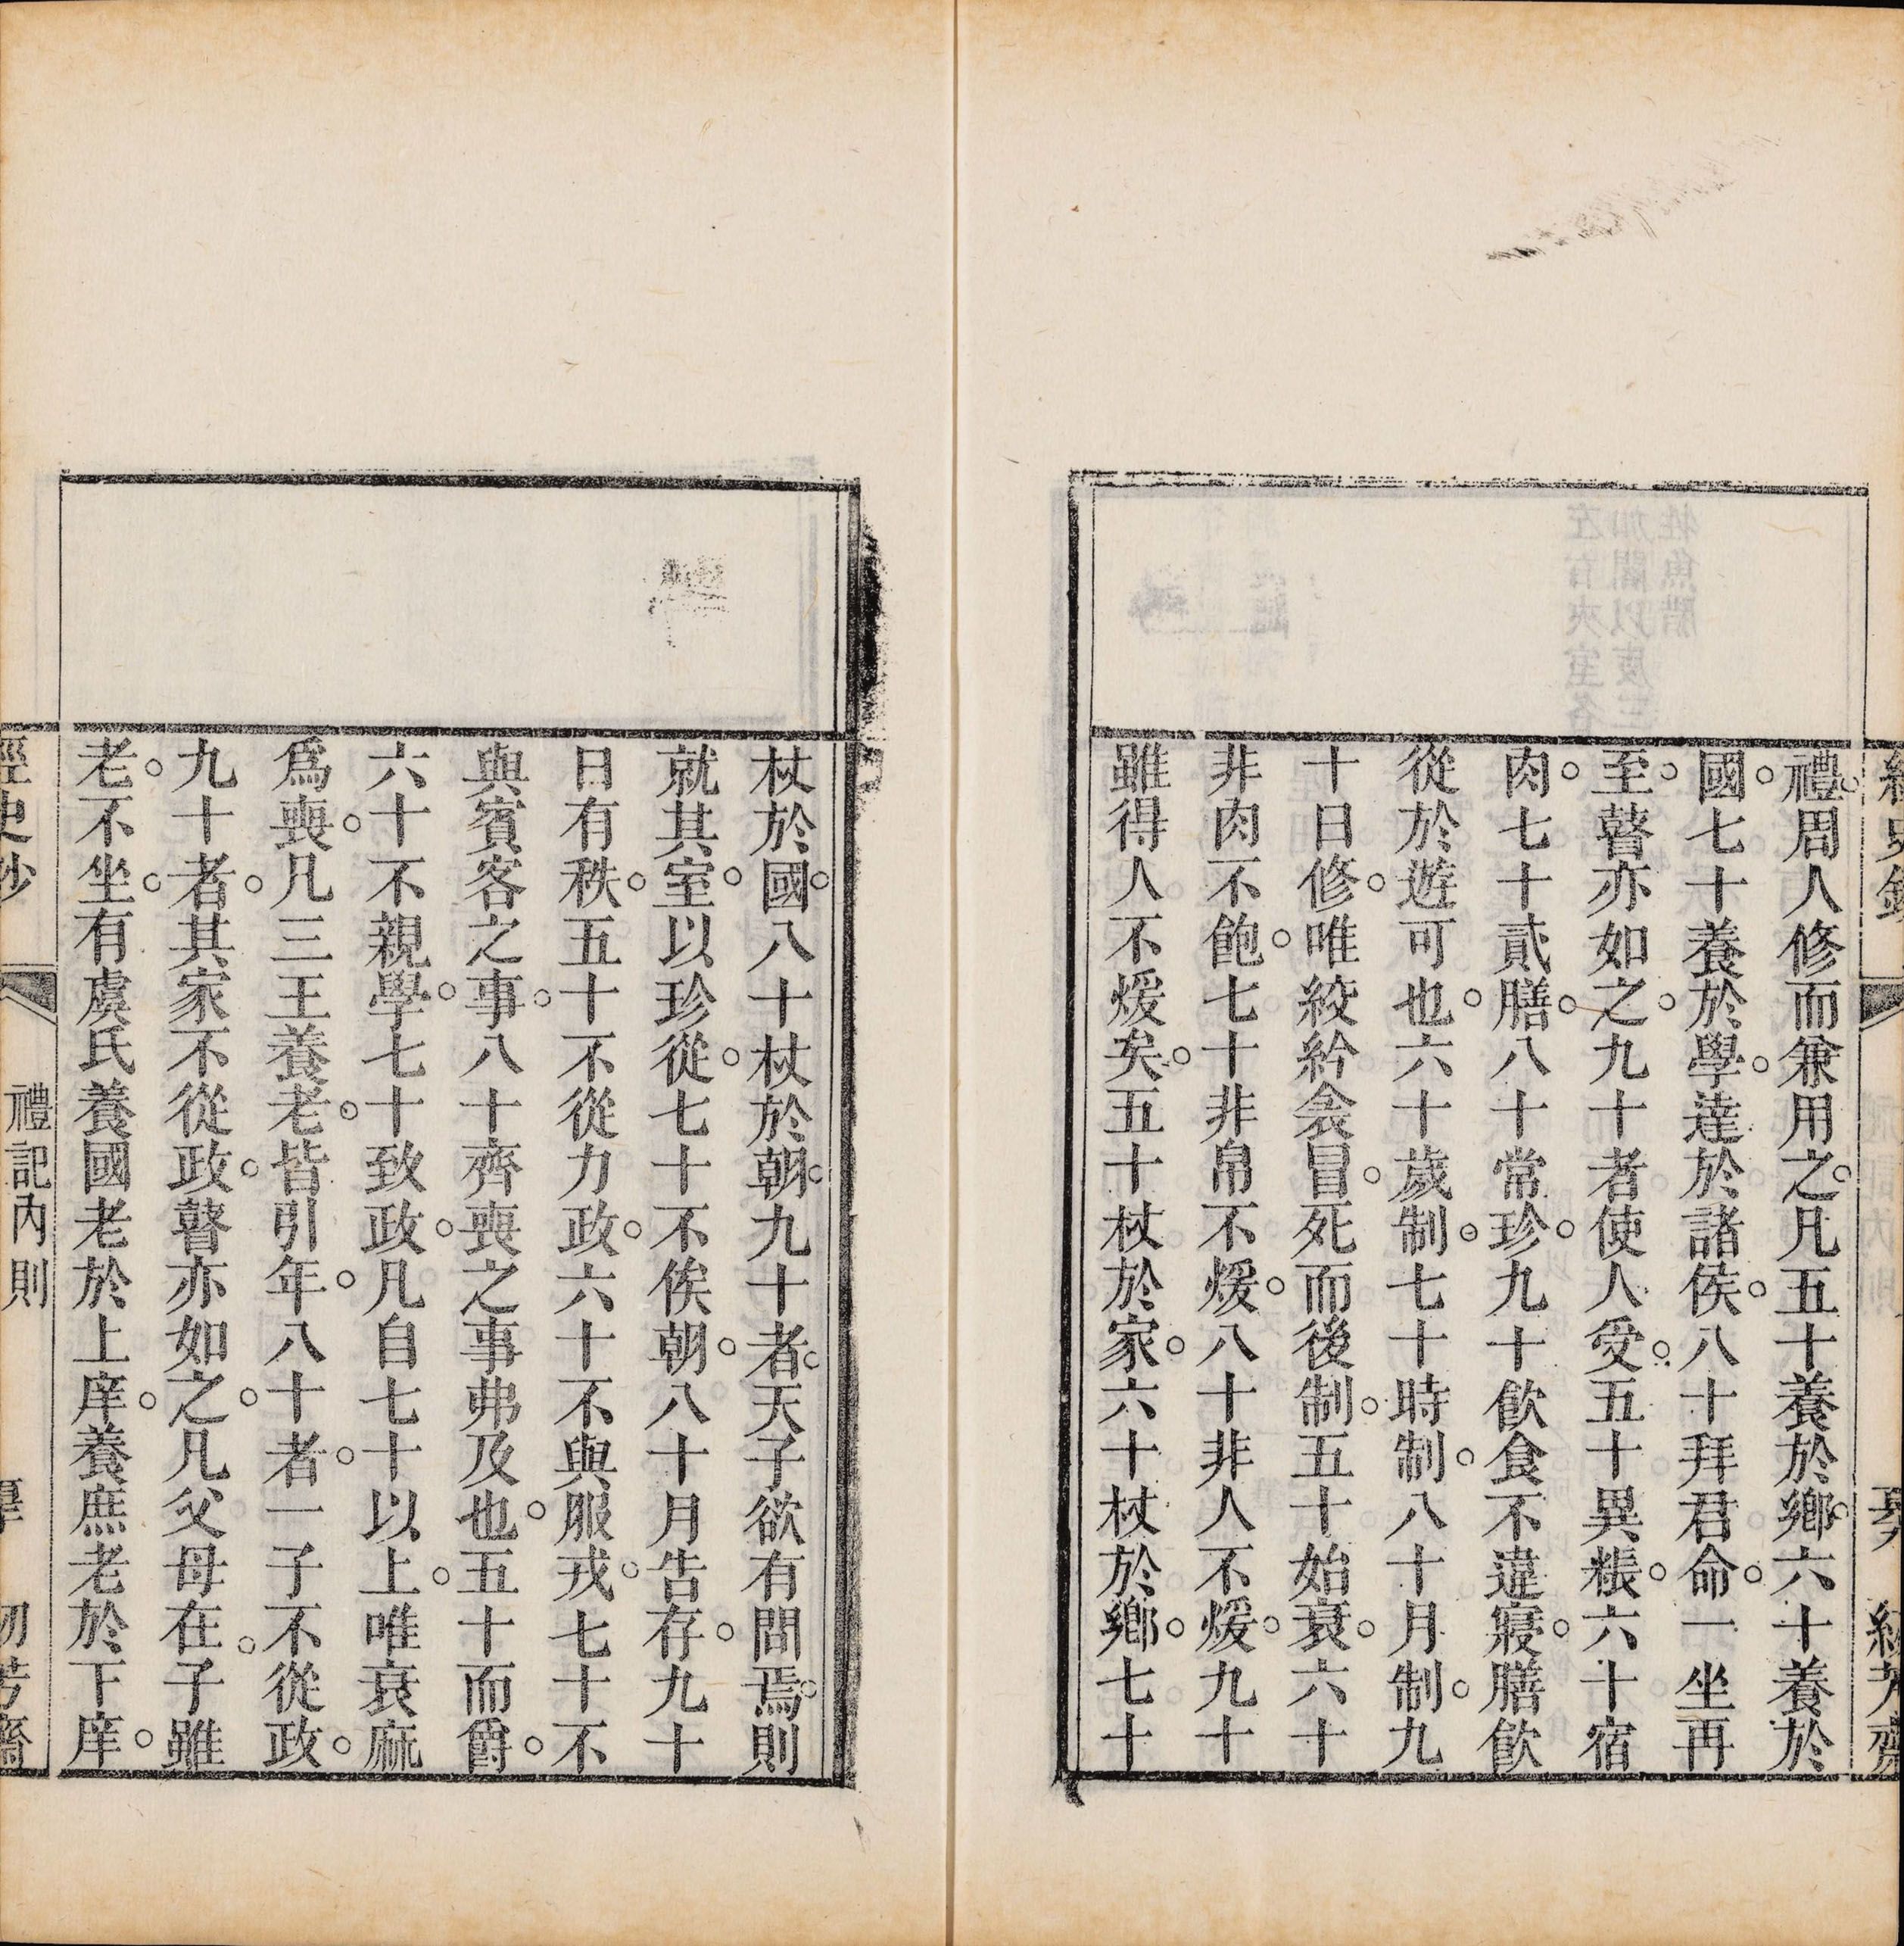 禮。周人修而兼用之。凡五十養於鄉。六十養於
國。七十養於學。達於諸侯。八十拜君命。一坐再
至。瞽亦如之。九十者使人受。五十異粻。六十宿
肉。七十貳膳。八十常珍。九十飲食不違寢。膳飲
從於遊可也。六十歲制。七十時制。八十月制。九
十日修。唯絞紟衾冒。死而後制。五十始衰。六十
非肉不飽。七十非帛不煖。八十非人不煖。九十
雖得人不煖矣。五十杖於家。六十杖於鄉。七十
杖於國。八十杖於朝。九十者。天子欲有問焉。則
就其室。以珍從。七十不俟朝。八十月告存。九十
日有秩。五十不從力政。六十不與服戎。七十不
與賓客之事。八十齊喪之事弗及也。五十而爵。
六十不親學。七十致政。凡自七十以上。唯衰麻
爲喪。凡三王養老。皆引年。八十者。一子不從政。
九十者。其家不從政。瞽亦如之。凡父母在。子雖
老。不坐。有虞氏養國老於上庠。養庶老於下庠。
經史鈔
禮記內則